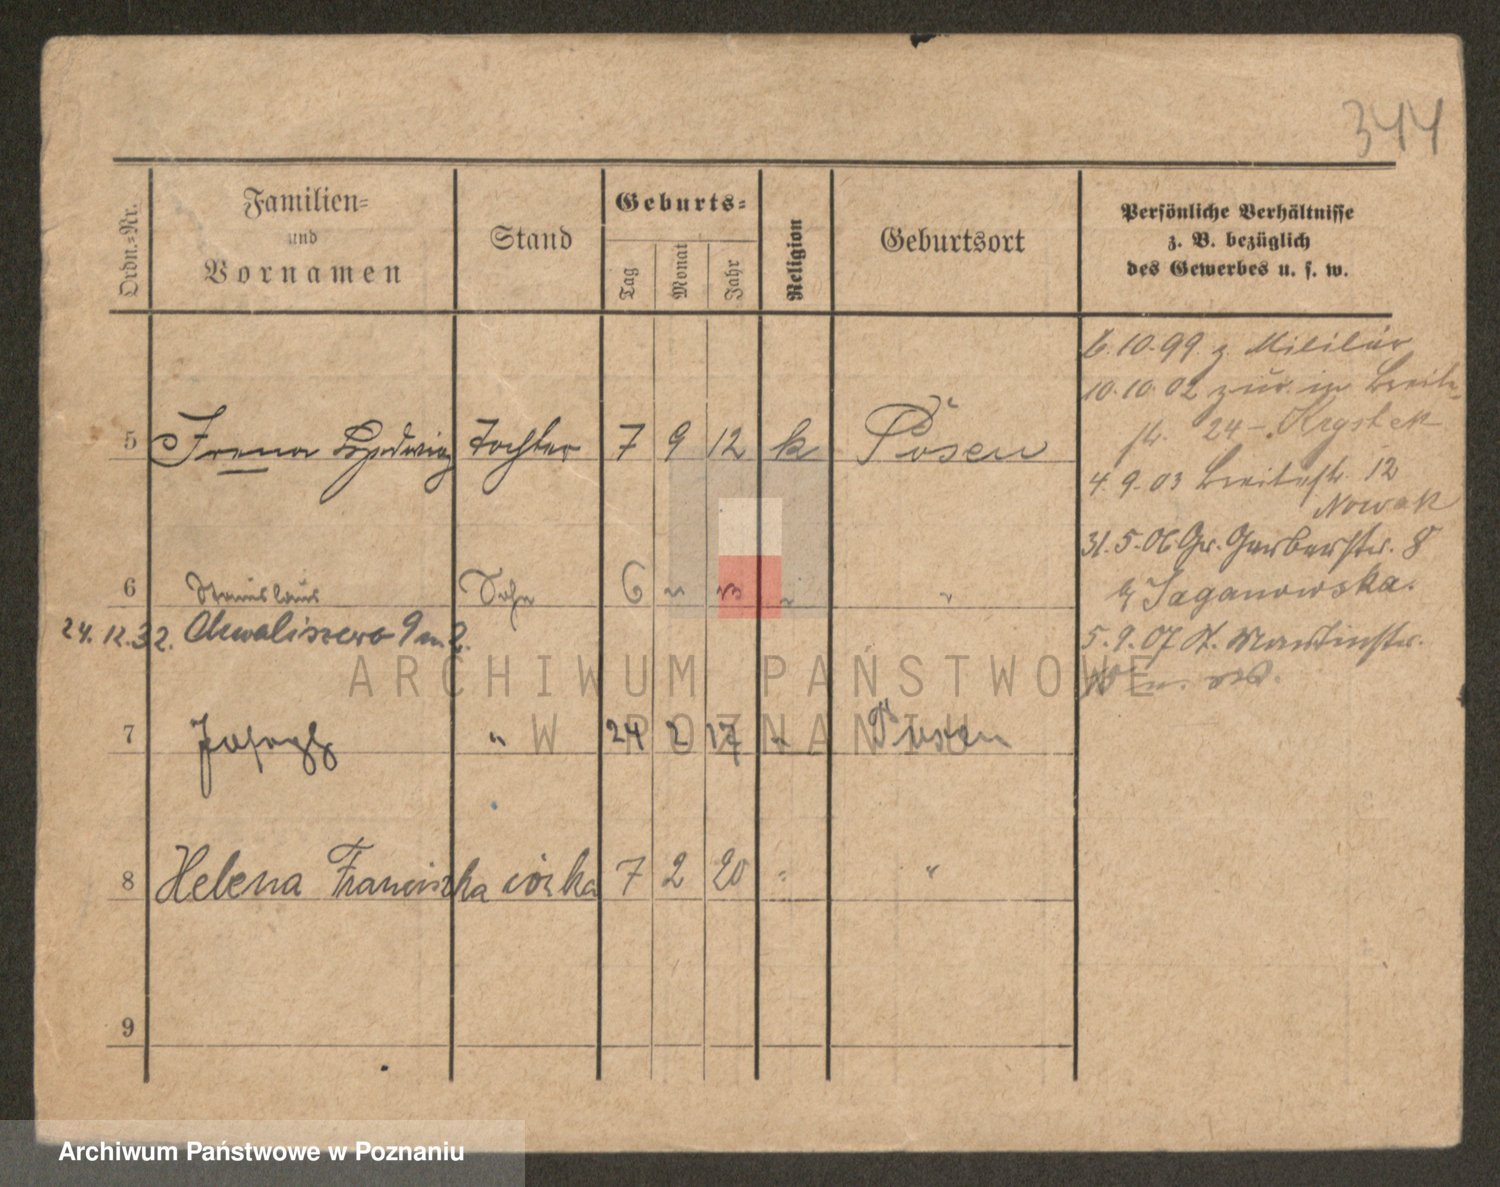 344
Ordn.=Nr.
Familien=
und
Vornamen
Stand
Geburts=
Tag
Monat
Jahr
Religion
Geburtsort
Persönliche Verhältnisse
z. B. bezüglich
des Gewerbes u. s. w.
6.10.99 z. Militär
10.10.02 zur. in Breite-
str. 24 - Krystek
4.9.03 Breitestr. 12
Nowak
31.5.06 Gr. Gerberstr. 8
b/ Jaganowska.
5.9.07 St. Martinstr.
5 Irena Hedwig Tochter 7 9 12 k Posen
6 Stanislaus Sohn 6 " 13 " "
24.12.32. Chwaliszewo 9 m 2.
7 Joseph " 24 2 17 " Posen
8 Helena Franciszka córka 7 2 20 " "
9
ARCHIWUM PAŃSTWOWE
W POZNANIU
Archiwum Państwowe w Poznaniu